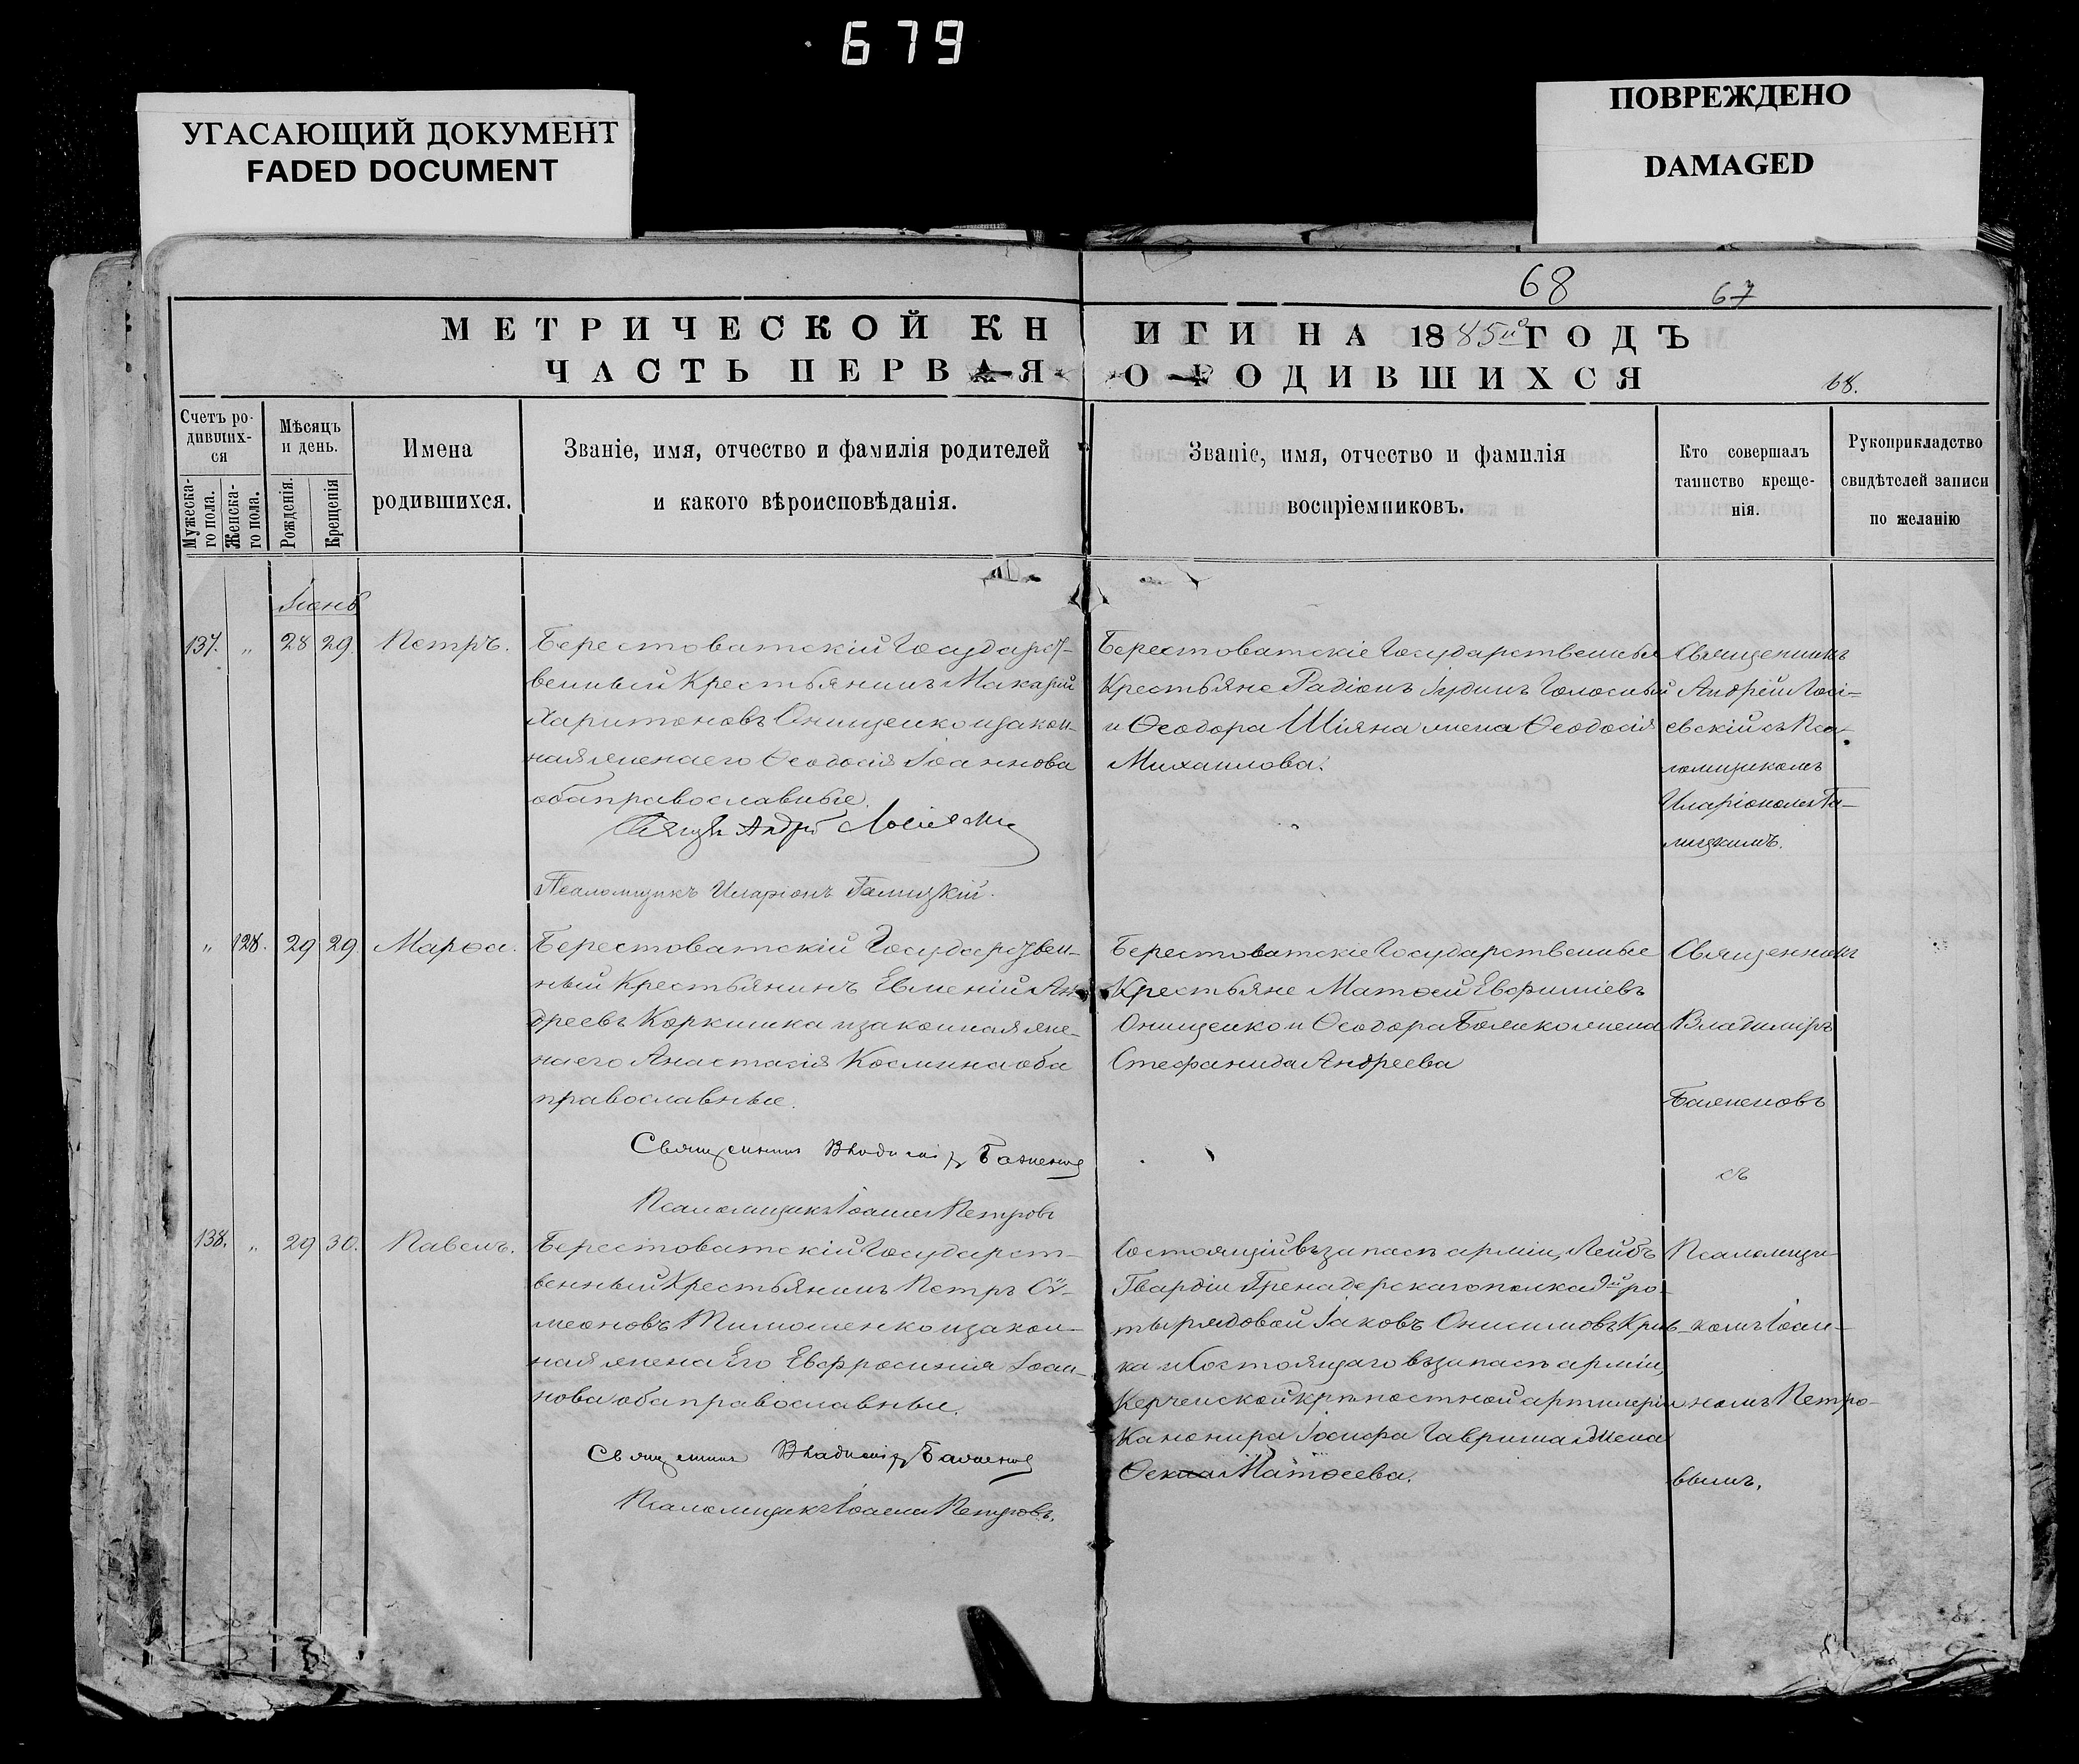 679
УГАСАЮЩИЙ ДОКУМЕНТ
FADED DOCUMENT
ПОВРЕЖДЕНО
DAMAGED
68
67
МЕТРИЧЕСКОЙ КНИГИ НА 1885й ГОДЪ
ЧАСТЬ ПЕРВАЯ О РОДИВШИХСЯ
68.
Счетъ ро-
дивших-
ся
Мужеска-
го пола.
Женска-
го пола.
Мѣсяцъ
и день.
Рожденія.
Крещенія
Имена
родившихся.
Званіе, имя, отчество и фамилія родителей
и какого вѣроисповѣданія.
Званіе, имя, отчество и фамилія
воспріемниковъ.
Кто совершалъ
таинство креще-
нія.
Рукоприкладство
свидѣтелей записи
по желанію
Іюнь
137. „ 28 29. Петръ.
Берестоватскій Государст-
венный Крестьянинъ Макарій
Харитоновъ Онищенко и закон-
ная жена его Ѳеодосія Іоаннова
оба православные.
Андрей
Псаломщикъ Иларіонъ Галицкій.
Берестоватскіе Государственные
Крестьяне Радіонъ Іудинъ Голосный
и Ѳеодора Шіяна жена Ѳеодосія
Михаилова.
Священникъ
Андрей
евскій съ Пса-
ломщикомъ
Иларіономъ Га-
лицкимъ.
„ 128. 29 29. Марѳа.
Берестоватскій Государствен-
ный Крестьянинъ Евменій Ан-
дреевъ Коркишка и законная же-
на его Анастасія Космина оба
православные.
Священникъ Владиміръ Баженовъ
Псаломщикъ Іоаннъ Петровъ
Берестоватскіе Государственные
Крестьяне Матѳей Евфиміевъ
Онищенко и Ѳеодора жена
Стефанида Андреева
Священникъ
Владиміръ
Баженовъ
съ
138. „ 29 30. Павелъ.
Берестоватскій Государст-
венный Крестьянинъ Петръ Сѵ-
меоновъ Тимошенко и закон-
ная жена Его Евфросинія Іоан-
нова оба православные.
Священникъ Владиміръ Баженовъ
Псаломщикъ Іоаннъ Петровъ.
Состоящій въ запасѣ арміи, Лейбъ
Гвардіи Гренадерскаго полка 9й ро-
ты рядовой Іаковъ Онисимовъ
ка и Состоящаго въ запасѣ арміи,
Керченской крѣпостной артилеріи
Канонира Іосифа Гавриша жена
Матѳеева.
Псаломщи-
комъ Іоан-
номъ Петро-
вымъ.